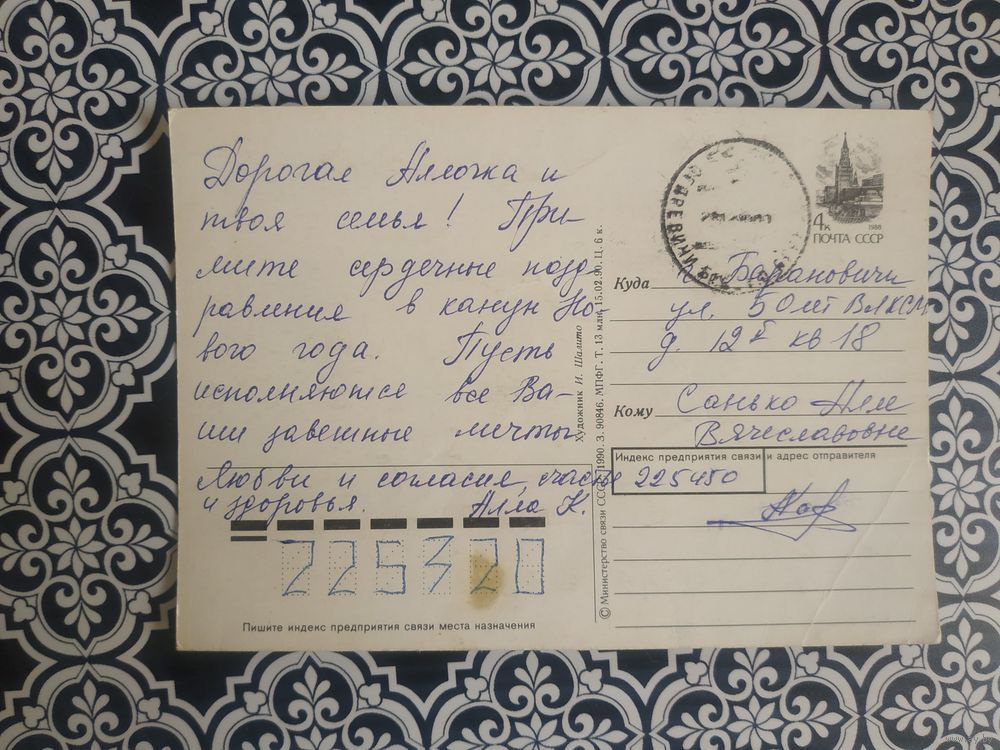 Дорогая Аллочка и
твоя семья! При-
мите сердечные позд-
равления в канун Но-
вого года. Пусть
исполняются все Ва-
ши заветные мечты.
Любви и согласия, счастья
и здоровья. Алла К.
225320
Пишите индекс предприятия связи места назначения
Художник И. Шалито
© Министерство связи СССР, 1990. З. 90846. МПФГ. Т. 13 млн. 15.02.90. Ц. 6 к.
4к
1988
ПОЧТА СССР
Куда г. Барановичи
ул. 50 лет ВЛКСМ
д. 12 кв 18
Кому Санько Алле
Вячеславовне
Индекс предприятия связи и адрес отправителя
225450